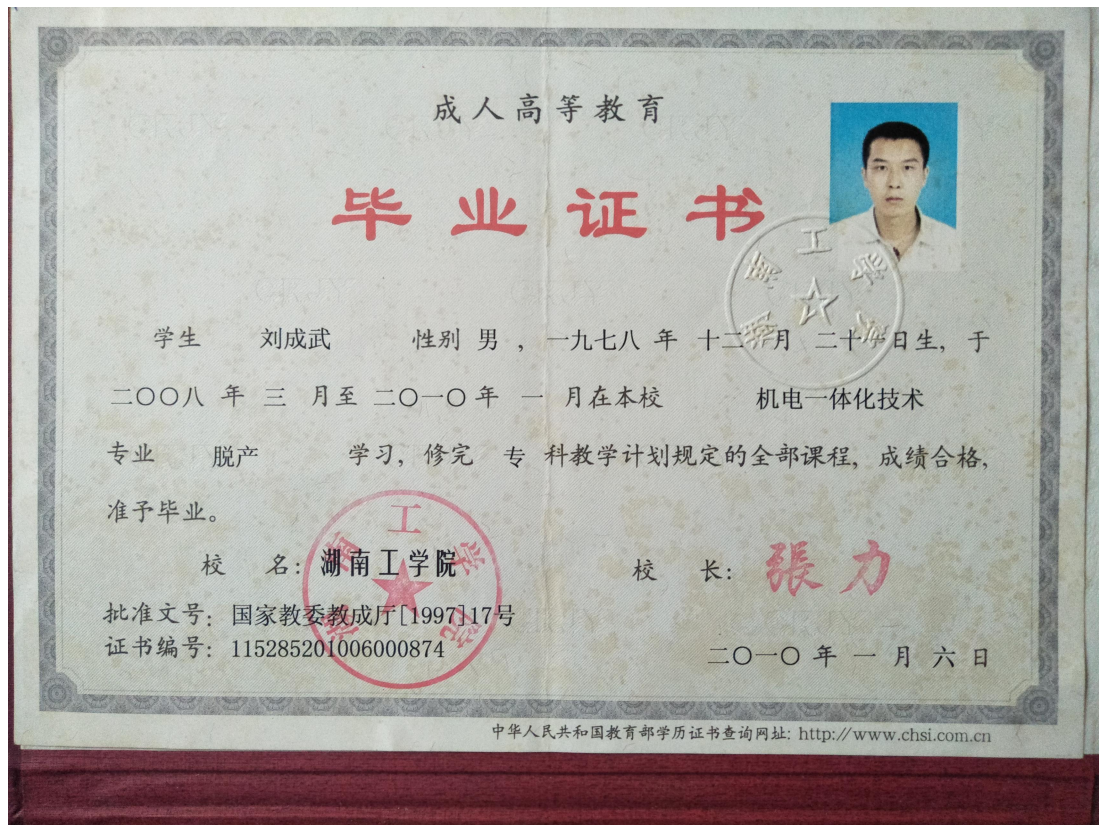 成人高等教育
毕业证书
学生 刘成武 性别 男，一九七八 年 十二 月 二十 日生，于
二〇〇八 年 三 月至 二〇一〇 年 一 月在本校 机电一体化技术
专业 脱产 学习，修完 专 科教学计划规定的全部课程，成绩合格，
准予毕业。
校 名：湖南工学院
校 长：張力
批准文号：国家教委教成厅[1997]17号
证书编号：115285201006000874
二〇一〇 年 一 月 六 日
湖南工学院
湖南工学院
中华人民共和国教育部学历证书查询网址：http://www.chsi.com.cn